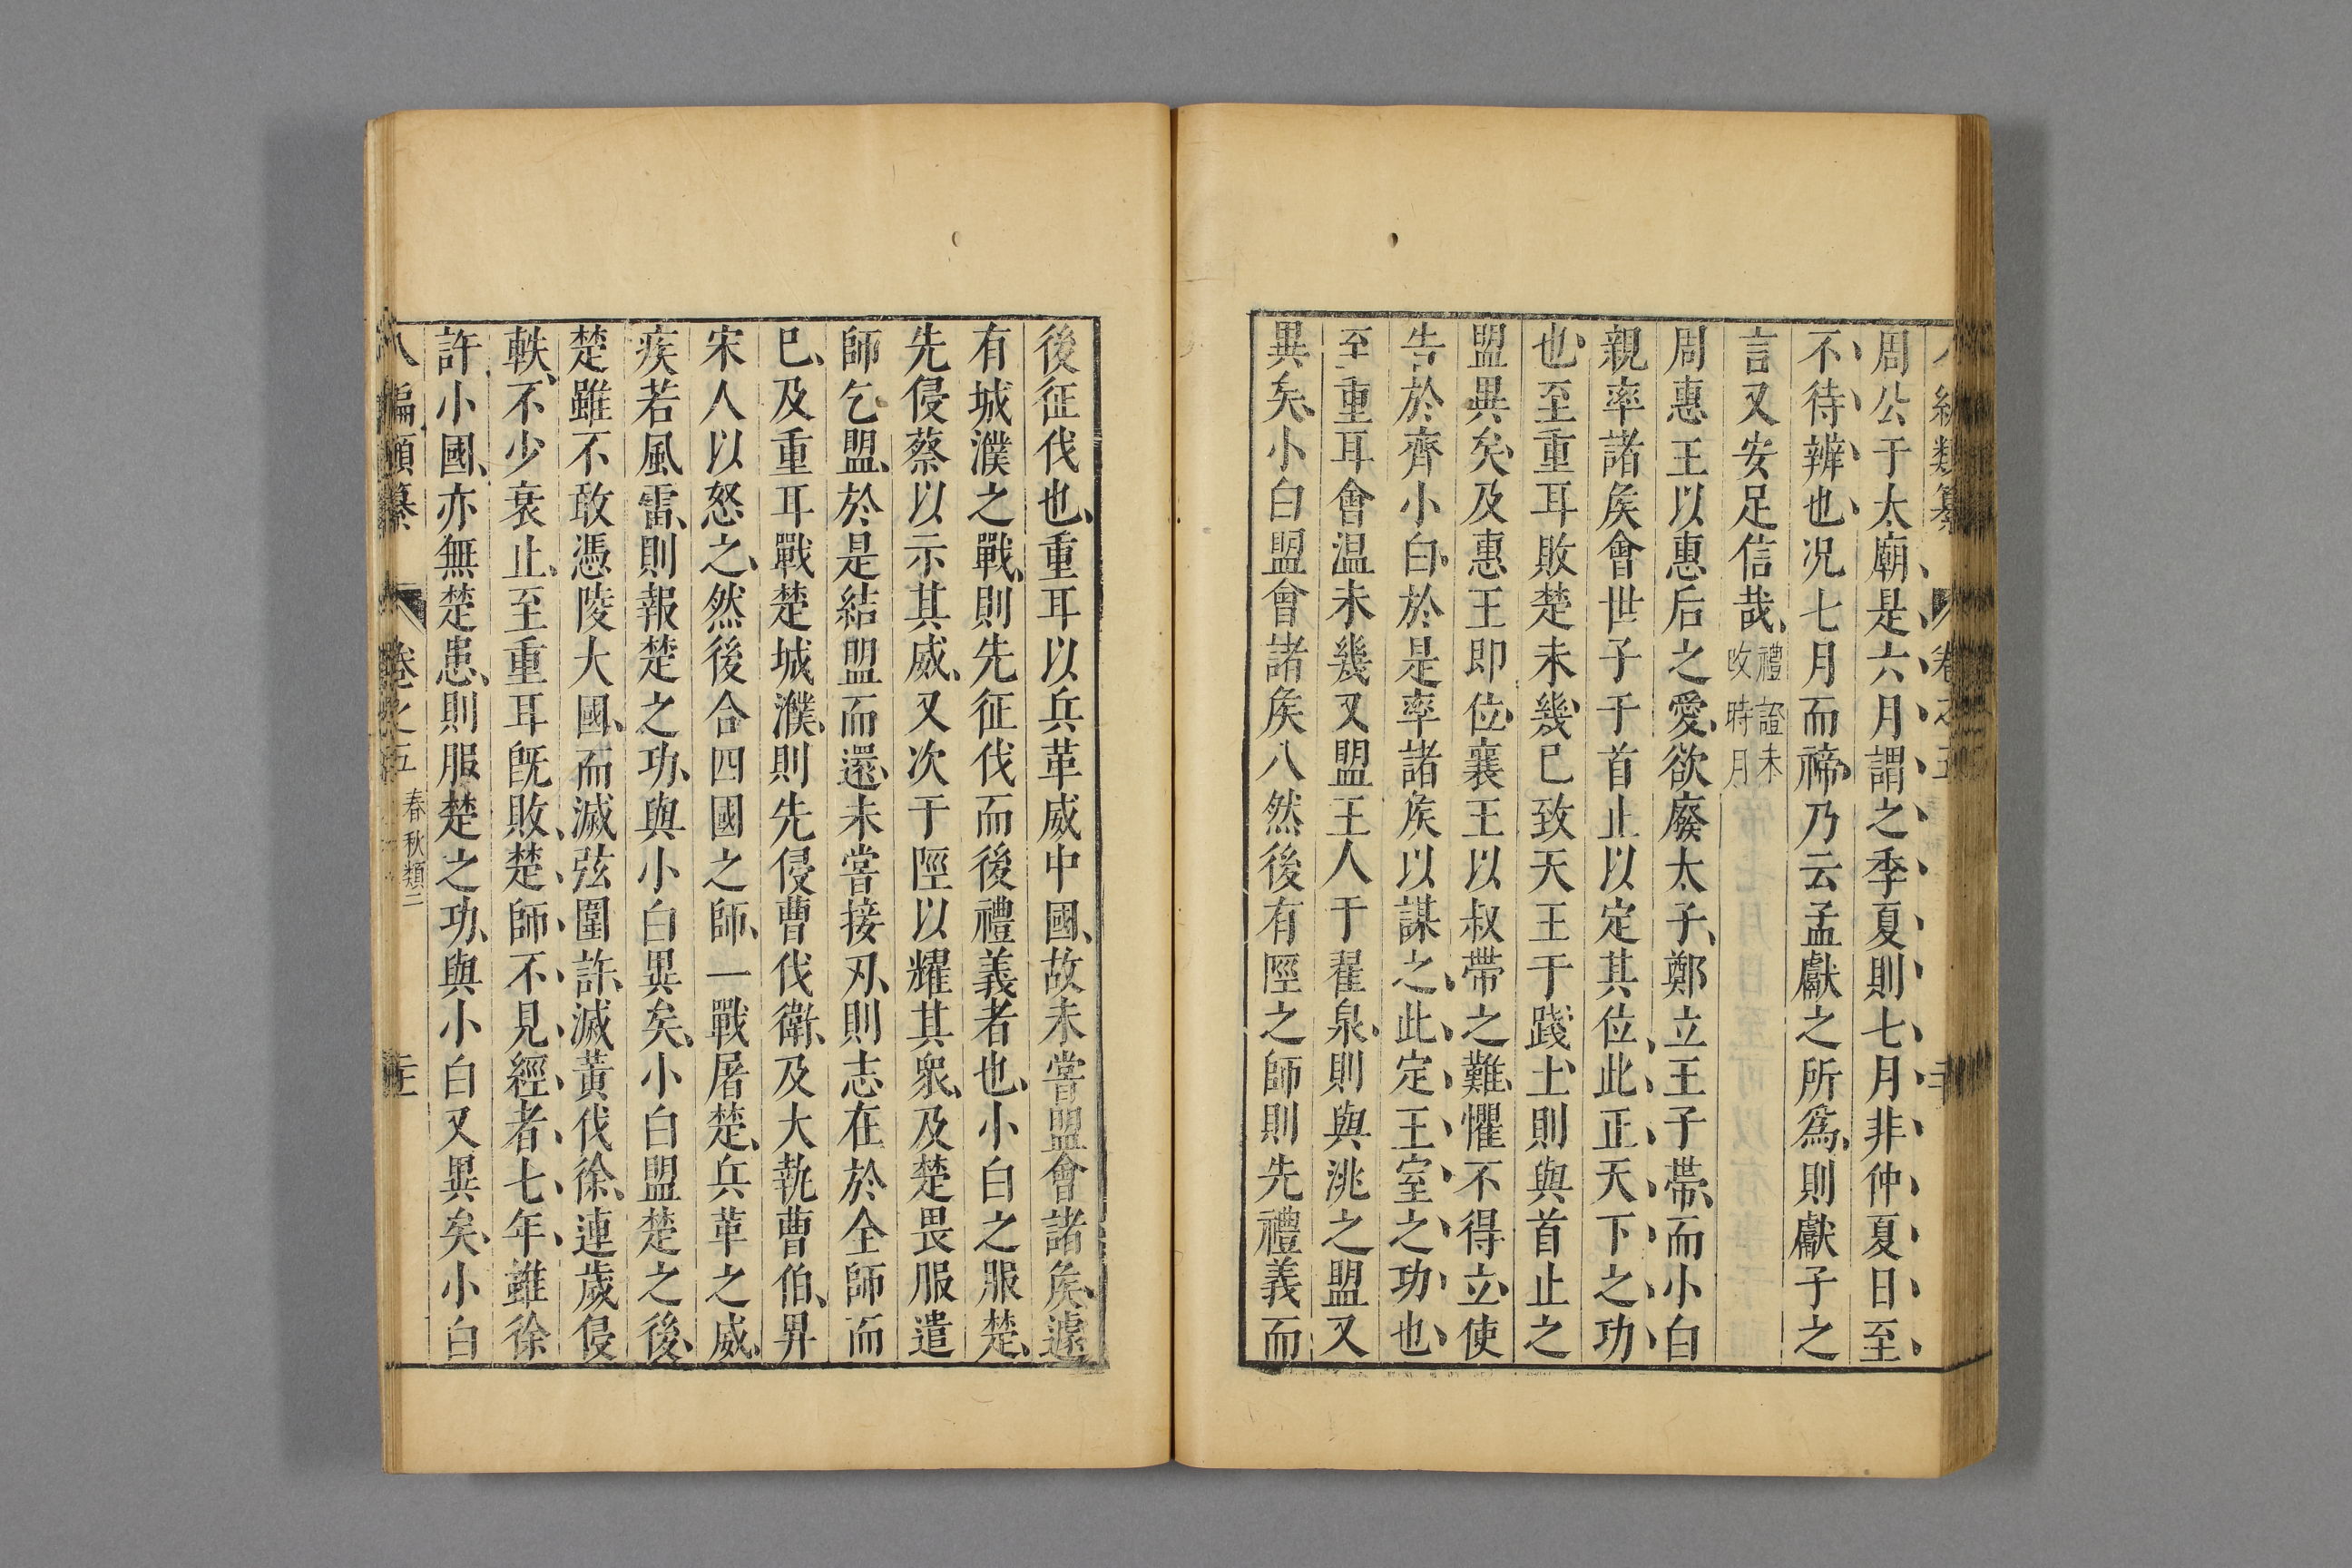 周公于太廟、是六月謂之季夏則七月非仲夏日至
不待辨也、况七月而禘、乃云孟獻之所爲、則獻子之
言又安足信哉、禮證未
改時月
周惠王以惠后之愛、欲廢太子、鄭立王子帶、而小白
親率諸矦會世子于首止以定其位、此正天下之功
也、至重耳敗楚未幾、巳致天王于踐土、則與首止之
盟異矣、及惠王即位、襄王以叔帶之難、懼不得立、使
告於齊小白、於是率諸矦以謀之、此定王室之功也、
至重耳會温未幾又盟王人于翟泉、則與洮之盟又
異矣、小白盟會諸矦八然後有陘之師則先禮義而
後征伐也、重耳以兵革威中國、故未嘗盟會諸矦、遽
有城濮之戰、則先征伐而後禮義者也、小白之服楚、
先侵蔡以示其威、又次于陘以耀其衆、及楚畏服遣
師乞盟、於是結盟而還、未嘗接刃、則志在於全師而
巳、及重耳戰楚城濮、則先侵曹伐衛、及大執曹伯、畀
宋人以怒之、然後合四國之師、一戰屠楚、兵革之威、
疾若風雷、則報楚之功、與小白異矣、小白盟楚之後、
楚雖不敢憑陵大國、而滅弦圍許、滅黃伐徐、連歲侵
軼、不少衰止、至重耳旣敗、楚師不見經者七年、雖徐
許小國、亦無楚患、則服楚之功、與小白又異矣、小白
八編類纂
卷之五
春秋類三